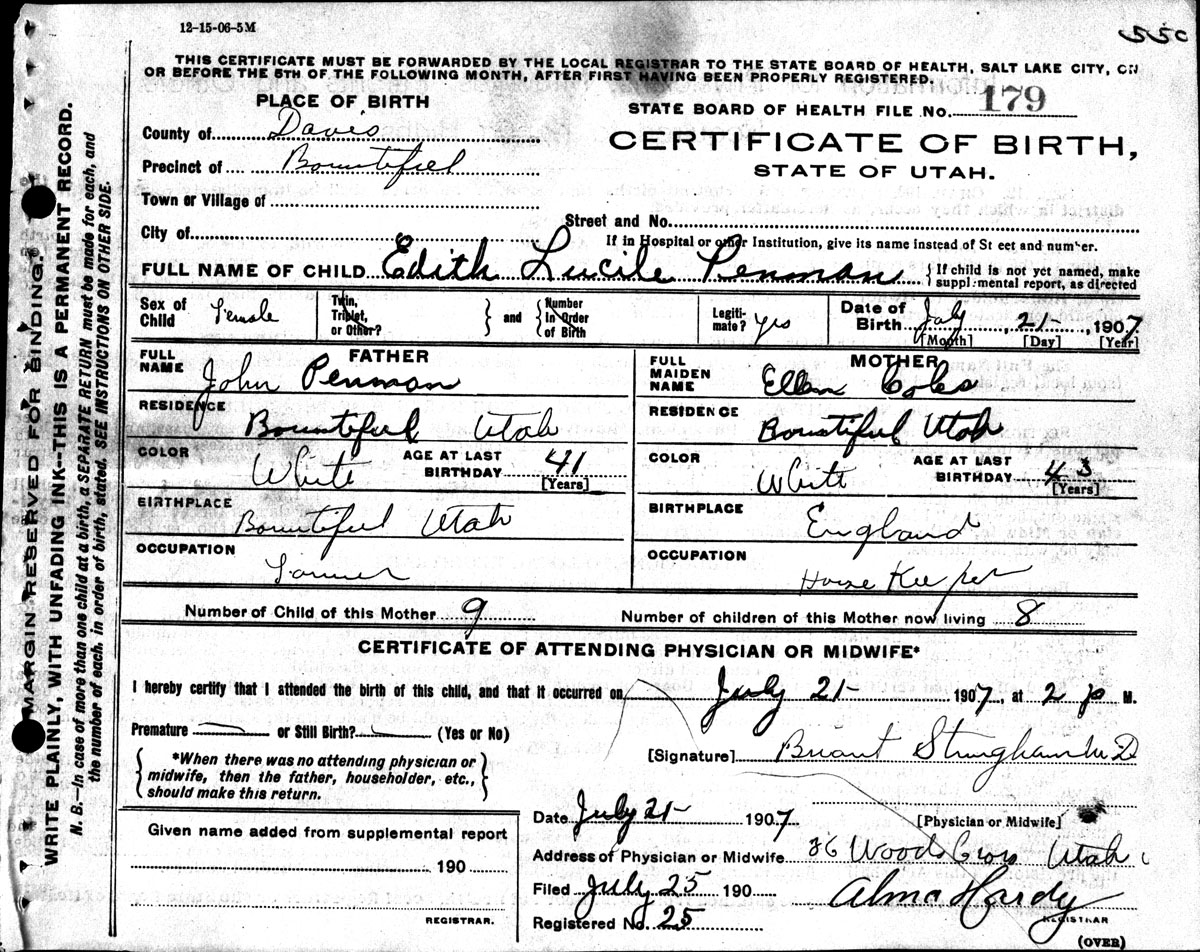 12-15-06-5M
550
THIS CERTIFICATE MUST BE FORWARDED BY THE LOCAL REGISTRAR TO THE STATE BOARD OF HEALTH, SALT LAKE CITY, ON
OR BEFORE THE 5TH OF THE FOLLOWING MONTH, AFTER FIRST HAVING BEEN PROPERLY REGISTERED.
PLACE OF BIRTH
STATE BOARD OF HEALTH FILE NO. 179
County of Davis
CERTIFICATE OF BIRTH,
Precinct of Bountiful
STATE OF UTAH.
Town or Village of
Street and No.
City of
If in Hospital or other Institution, give its name instead of St eet and number.
FULL NAME OF CHILD Edith Lucile Penman { If child is not yet named, make
suppl mental report, as directed
Sex of Child Female Twin, Triplet, or Other? } and { Number in Order of Birth Legitimate? yes Date of Birth July, 21, 1907
[Month] [Day] [Year]
FATHER
FULL NAME John Penman
RESIDENCE Bountiful Utah
COLOR White AGE AT LAST BIRTHDAY 41
[Years]
BIRTHPLACE Bountiful Utah
OCCUPATION Farmer
MOTHER
FULL MAIDEN NAME Ellen Coles
RESIDENCE Bountiful Utah
COLOR White AGE AT LAST BIRTHDAY 43
[Years]
BIRTHPLACE England
OCCUPATION House Keeper
Number of Child of this Mother 9 Number of children of this Mother now living 8
CERTIFICATE OF ATTENDING PHYSICIAN OR MIDWIFE*
I hereby certify that I attended the birth of this child, and that it occurred on July 21 1907, at 2 p M.
Premature — or Still Birth? — (Yes or No)
{ *When there was no attending physician or
midwife, then the father, householder, etc.,
should make this return. }
[Signature] Briant Stringham M D
Date July 21 1907
[Physician or Midwife]
Given name added from supplemental report
190
REGISTRAR.
Address of Physician or Midwife Woods Cross Utah
Filed July 25 190 Alma Hardy
REGISTRAR
Registered No. 25
(OVER)
MARGIN RESERVED FOR BINDING.
WRITE PLAINLY, WITH UNFADING INK--THIS IS A PERMANENT RECORD.
N. B.—In case of more than one child at a birth, a SEPARATE RETURN must be made for each, and
the number of each, in order of birth, stated. SEE INSTRUCTIONS ON OTHER SIDE.